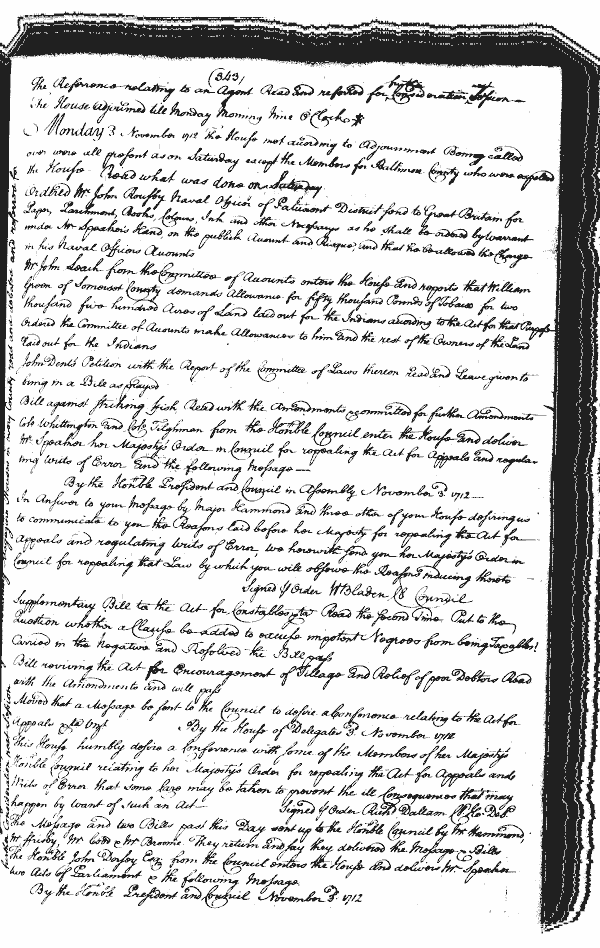 (343)
The Referrence relating to an Agent Read and referred for Consideration next Session
The House adjourned till Monday Morning Nine O Clock
Monday 3 November 1712 The House met according to Adjournment Being called
over were all present as on Saturday except the Members for Baltimore County who were expected
the House Read what was done on Saturday
Ordered Mr John Rousby Naval Officer of Patuxent District send to Great Britain for
Paper, Parchment, Books, Colours, Ink and other Necessarys as he shall be ordered by warrant
under Mr Speakers hand, on the publick Account and Risque, and that he be allowed the Charge
in his Naval Officers Accounts
Mr John Leach from the Committee of Accounts enters the House and reports that William
Green of Somerset County demands Allowance for fifty thousand Pounds of Tobacco for two
thousand five hundred Acres of Land laid out for the Indians according to the Act for that Purpose
Ordered the Committee of Accounts make Allowances to him and the rest of the Owners of the Land
laid out for the Indians
John Dents Petition with the Report of the Committee of Laws thereon Read and Leave given to
bring in a Bill as prayed
Bill against striking Fish Read with the Amendments & committed for further Amendments
Colo Whittington and Colo Tilghman from the Honble Council enter the House and deliver
Mr Speaker her Majesty's Order in Council for repealing the Act for Appeals and regula-
ting Writs of Error and the following Message
By the Honble President and Council in Assembly November 3d 1712
In Answer to your Message by Major Hammond and three other of your House desiring us
to communicate to you the Reasons laid before her Majesty for repealing the Act for
Appeals and regulating Writs of Error, we herewith send you her Majesty's Order in
Council for repealing that Law by which you will observe the Reasons inducing thereto
Signed P Order W Bladen Cl Council
Supplementary Bill to the Act for Constables &ca Read the second Time Put to the
Question whether a Clause be added to excuse impotent Negroes from being Taxables!
Carried in the Negative and Resolved the Bill pass
Bill reviving the Act for Encouragement of Tillage and Relief of poor Debtors Read
with the Amendments and will pass
Moved that a Message be sent to the Council to desire a Conference relating to the Act for
Appeals &
By the House of Delegates 3d November 1712
This House humbly desire a Conference with some of the Members of her Majesty's
Honble Council relating to her Majesty's Order for repealing the Act for Appeals and
Writs of Error that some Care may be taken to prevent the ill Consequences that may
happen by want of such an Act
Signed P Order Richd Dallam Cl Ho Del
The Message and two Bills past this Day sent up to the Honble Council by Mr Hammond,
Mr Frisby, Mr & Mr Broome. They return and say they delivered the Message & Bills
The Honble John Dorsey Esqr from the Council enters the House and delivers Mr Speaker
two Acts of Parliament & the following Message
By the Honble President and Council November 3d 1712